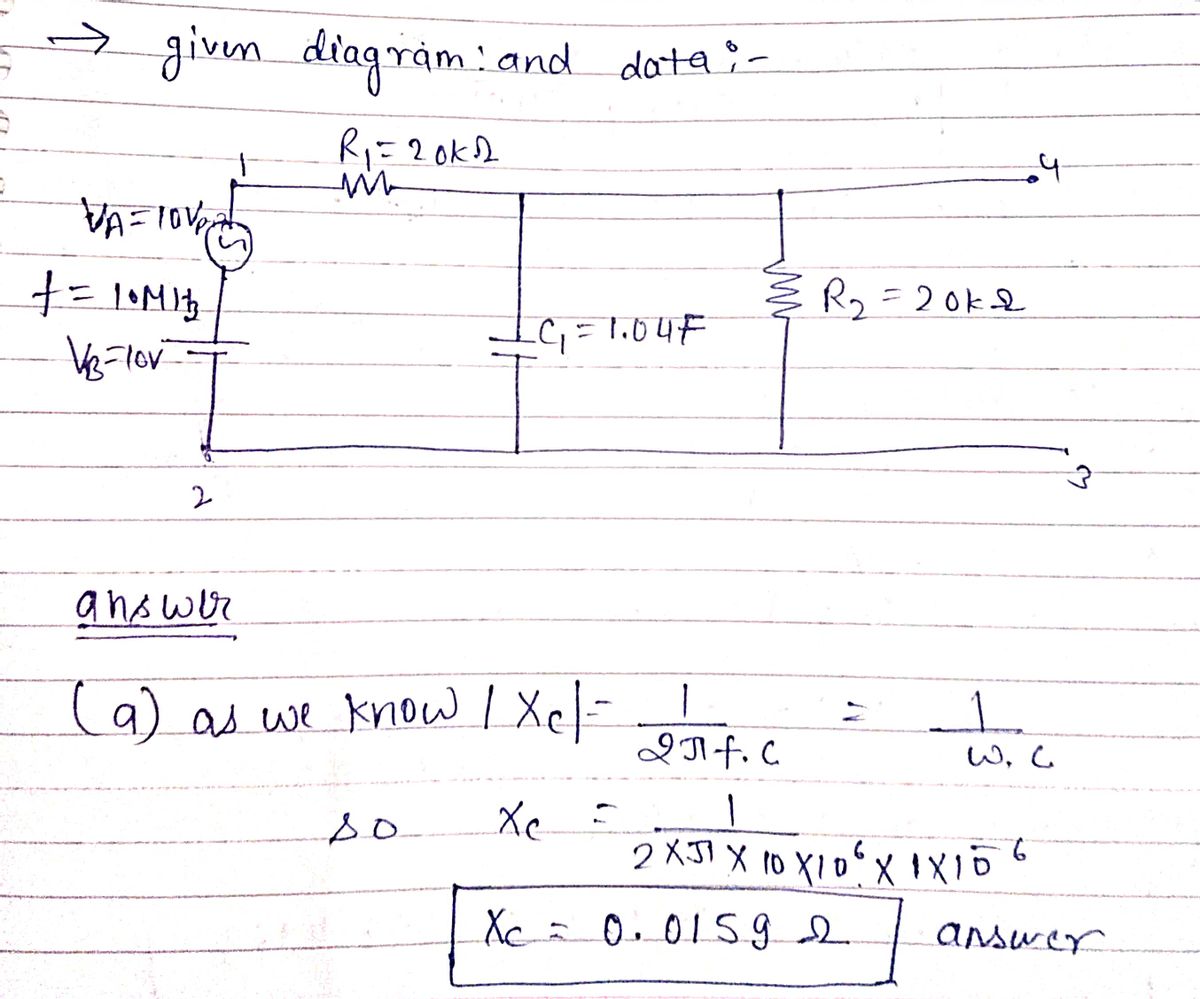 → given diagram: and data :-
R₁ = 20kΩ
1
4
VA = 10Vp
f = 10MHz
R₂ = 20kΩ
C₁ = 1.04F
VB = 10V
2
3
answer
(a) as we know |Xc| = 1/2πf.C = 1/ω.C
so Xc = 1/2×π×10×10⁶×1×10⁻⁶
Xc = 0.0159 Ω answer